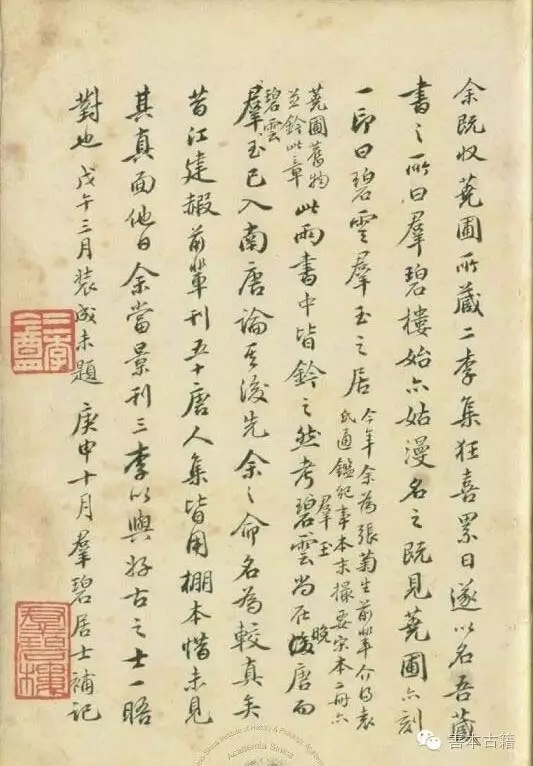 余既收蕘圃所藏二李集狂喜累日遂以名吾藏
書之所曰羣碧樓始亦姑漫名之既見蕘圃亦刻
一印曰碧雲羣玉之居
今年余為張菊生前輩介得袁
氏通鑑紀事本末撮要宋本二冊亦
蕘圃舊物
並鈐此章
此兩書中皆鈐之然考碧雲尚在後唐而
羣玉
晚
羣玉已入南唐論其後先余之命名為較真矣
碧雲
昔江建霞前輩刊五十唐人集皆用棚本惜未見
其真面他日余當景刊三李以與好古之士一晤
對也戊午三月裝成未題庚申十月羣碧居士補記
三李盦
羣碧樓
Academia Sinica
善本古籍